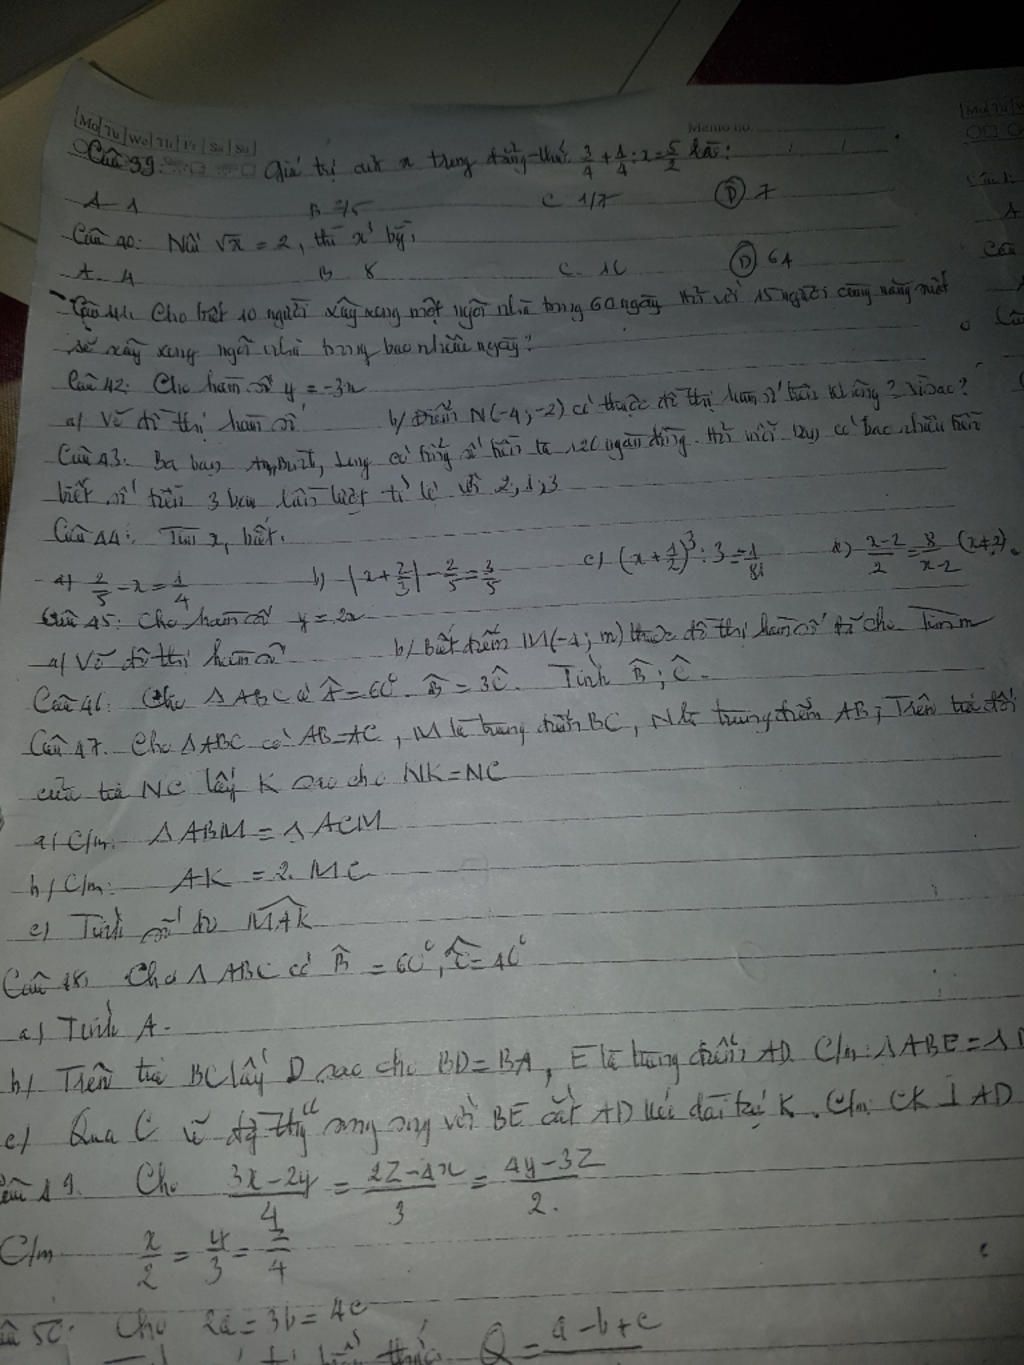 Mo Tu We Th Fr Sa Su
Memo no.
Câu 39: Giá trị của x trong đẳng thức 3/4 + 1/4 : x = 5/2 là:
A 1 B 2/5 C 1/7 D 7
Câu 40: Nếu √x = 2, thì x³ bg:
A. 4 B 8 C. 16 D 64
Câu 41: Cho biết 10 người xây xong một ngôi nhà trong 60 ngày thì với 15 người cùng năng suất
sẽ xây xong ngôi nhà trong bao nhiêu ngày?
Câu 42: Cho hàm số y = -3x
a/ Vẽ đồ thị hàm số b/ Điểm N(-4; -2) có thuộc đồ thị hàm số trên không? Vì sao?
Câu 43: Ba bạn An, có tổng số tiền là 120 ngàn đồng. Hỏi mỗi bạn có bao nhiêu tiền
biết số tiền 3 bạn lần lượt tỉ lệ với 2, 1, 3
Câu 44: Tìm x, biết:
a) 2/5 - x = 1/4 b) |x + 2/3| - 2/5 = 3/5 c) (x + 1/2)³ : 3 = 1/81 d) x-2/2 = 8/x-2
Câu 45: Cho hàm số y = 2x
a/ Vẽ đồ thị hàm số b/ biết điểm M(-4; m) thuộc đồ thị hàm số đã cho Tìm m
Câu 46: Cho Δ ABC có Â = 60°. B̂ = 3Ĉ. Tính B̂; Ĉ.
Câu 47. Cho Δ ABC có AB = AC, M là trung điểm BC, N là trung điểm AB; Trên tia đối
của tia NC lấy K sao cho NK = NC
a/ C/m: Δ ABM = Δ ACM
b/ C/m: AK = 2. MC
c/ Tính số đo MAK
Câu 48: Cho Δ ABC có B̂ = 60°, Ĉ = 40°
a) Tính A.
b/ Trên tia BC lấy D sao cho BD = BA, E là trung điểm AD. C/m: Δ ABE = Δ D
c/ Qua C vẽ đg thg song song với BE cắt AD kéo dài tại K. C/m CK ⊥ AD
Câu 49. Cho 3x-2y/4 = 2z-4x/3 = 4y-3z/2.
C/m x/2 = y/3 = z/4
50: Cho 2a = 3b = 4c
Q = a-b+c